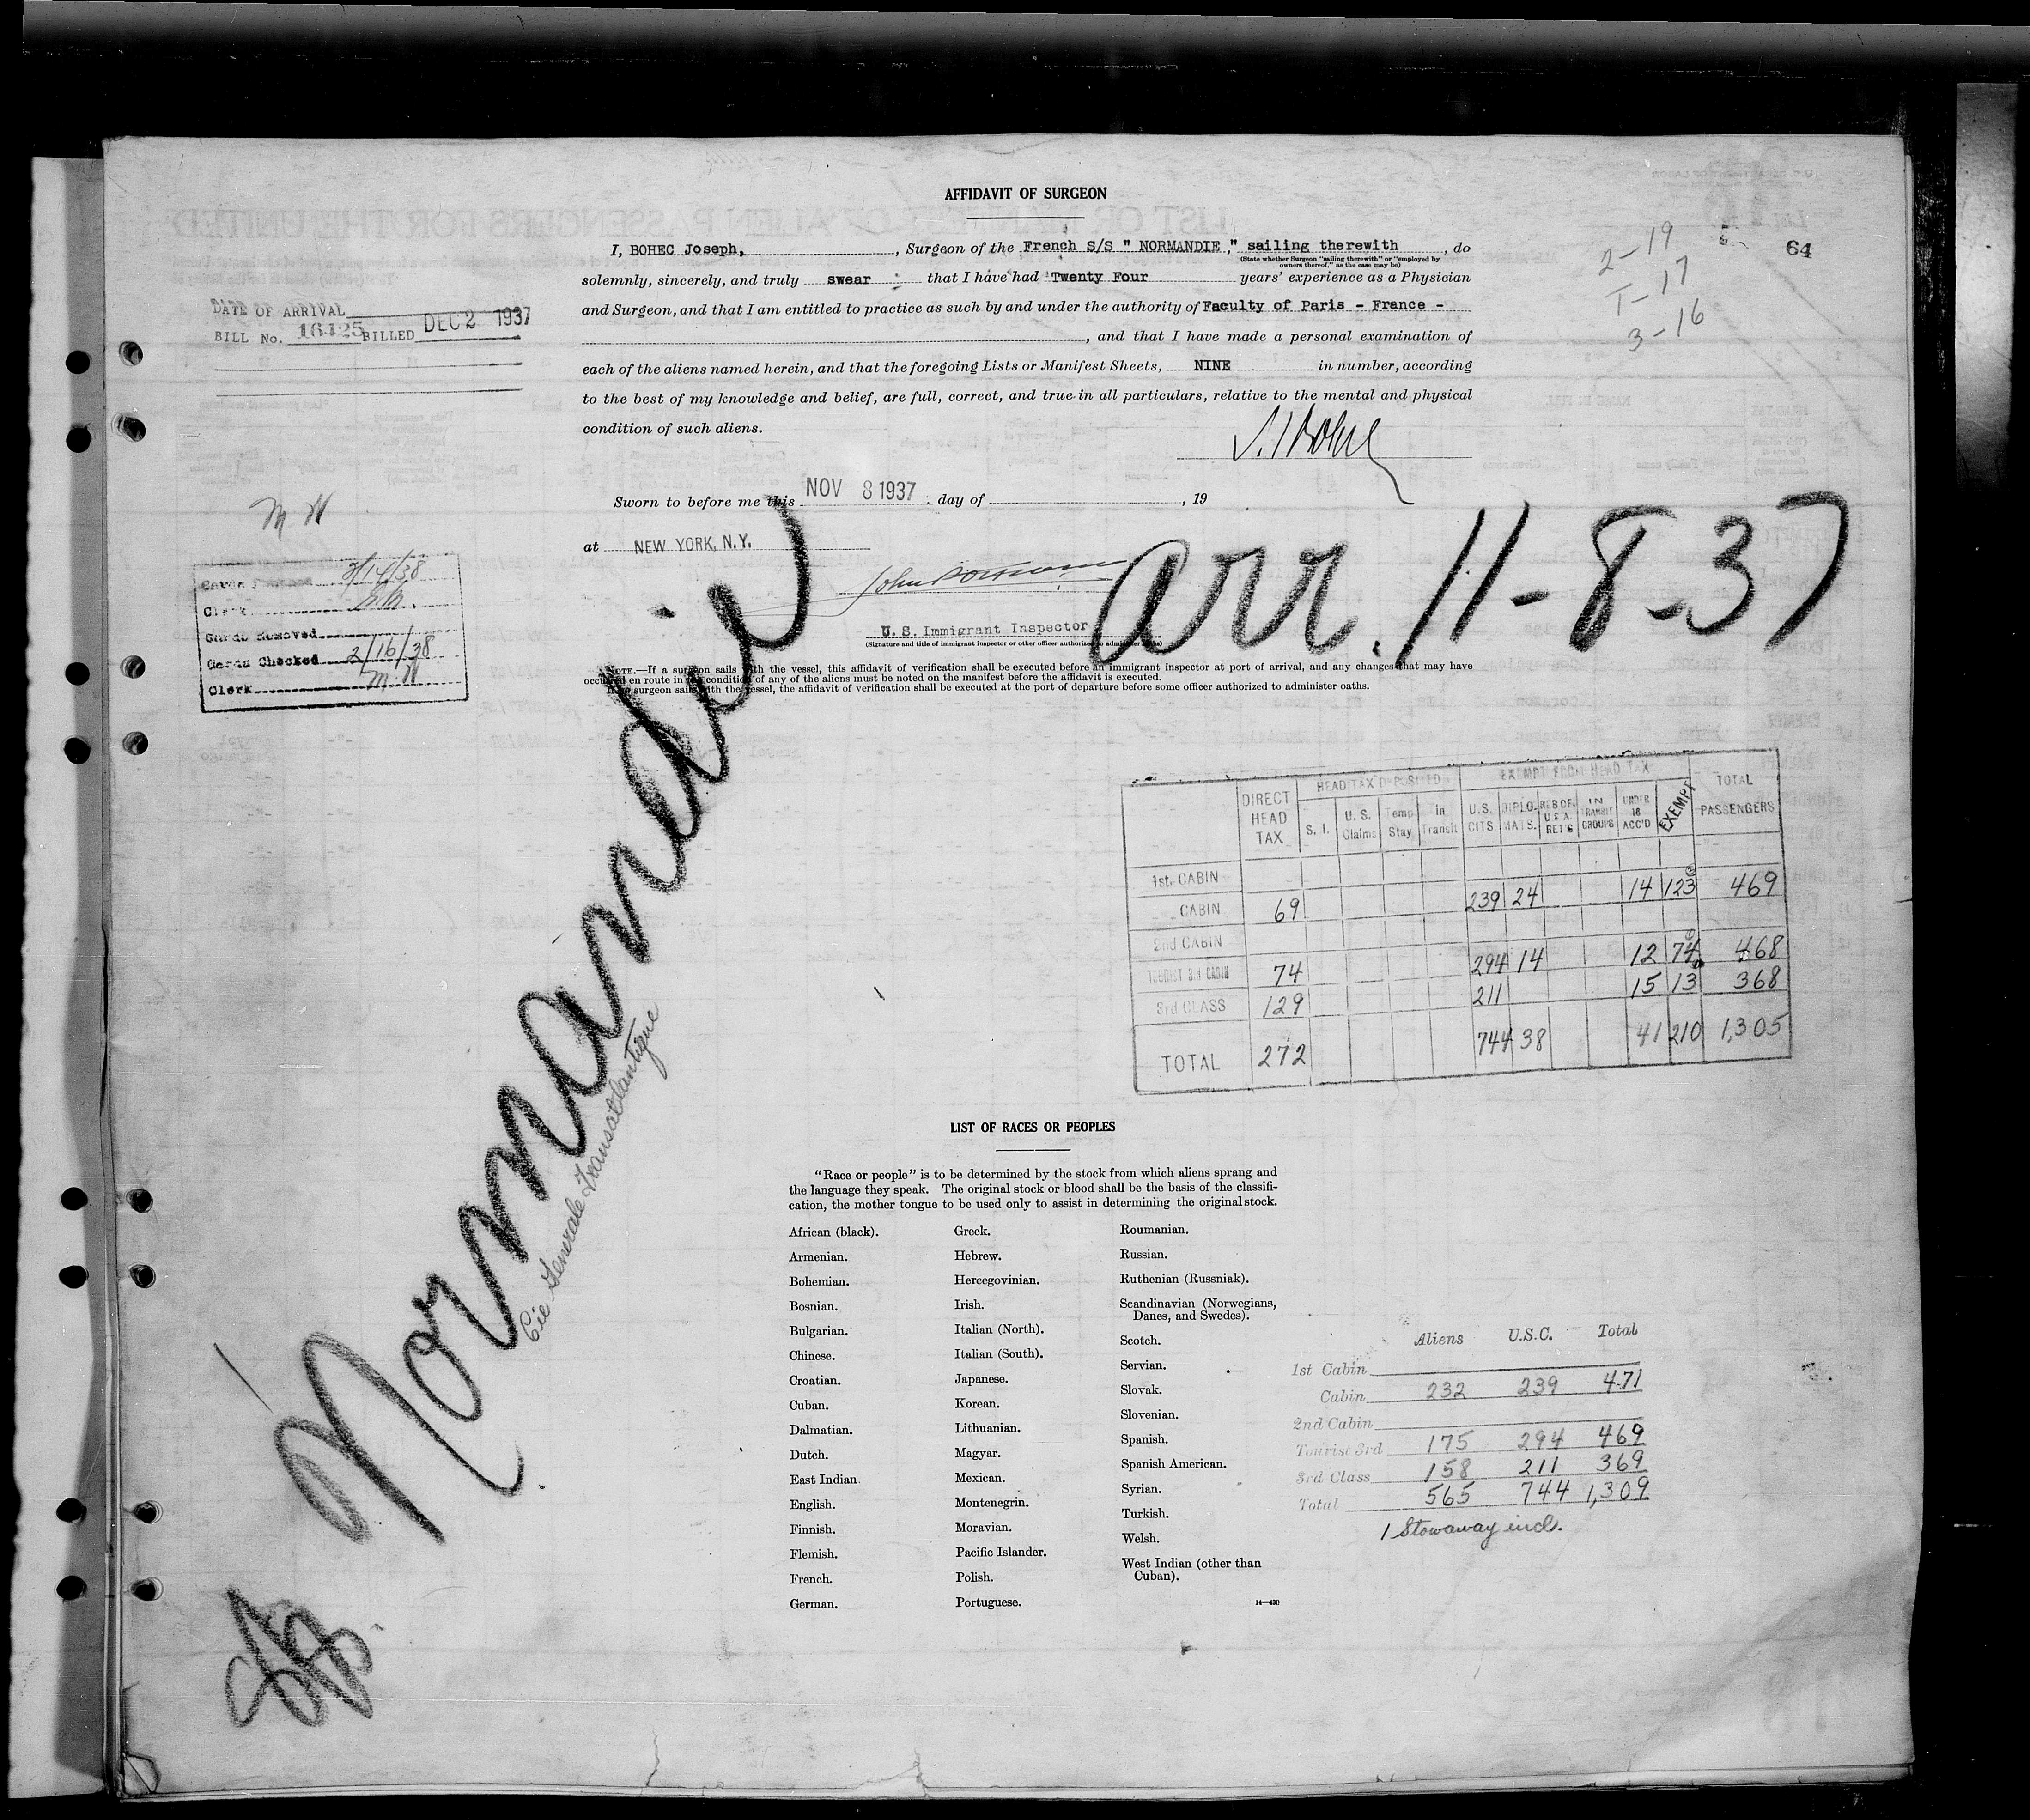 AFFIDAVIT OF SURGEON
I, BOHEC Joseph, , Surgeon of the French S/S " NORMANDIE ," sailing therewith , do
(State whether Surgeon "sailing therewith" or "employed by
owners thereof," as the case may be)
solemnly, sincerely, and truly swear that I have had Twenty Four years' experience as a Physician
and Surgeon, and that I am entitled to practice as such by and under the authority of Faculty of Paris - France -
, and that I have made a personal examination of
each of the aliens named herein, and that the foregoing Lists or Manifest Sheets, NINE in number, according
to the best of my knowledge and belief, are full, correct, and true in all particulars, relative to the mental and physical
condition of such aliens.
Sworn to before me this NOV 8 1937 day of , 19
at NEW YORK, N.Y.
U. S. Immigrant Inspector
(Signature and title of immigrant inspector or other officer authorized to administer oaths)
NOTE.—If a surgeon sails with the vessel, this affidavit of verification shall be executed before an immigrant inspector at port of arrival, and any changes that may have
occurred en route in the condition of any of the aliens must be noted on the manifest before the affidavit is executed.
If no surgeon sails with the vessel, the affidavit of verification shall be executed at the port of departure before some officer authorized to administer oaths.
64
2-19
T-17
3-16
DATE OF ARRIVAL
BILL No. 16425 BILLED DEC 2 1937
M W
Cards 2/14/38
Clerk
Cards Removed
Cards Checked 2/16/38
Clerk M W
arr. 11-8-37
Normandie
Cie Generale Transatlantique
HEAD TAX DEPOSITED EXEMPT FROM HEAD TAX
DIRECT HEAD TAX S. I. U. S. Claims Temp Stay In Transit U.S. CITS DIPLO-MATS. REB OF U S A RET'G IN TRANSIT GROUPS UNDER 16 ACC'D EXEMPT TOTAL PASSENGERS
1st. CABIN
CABIN 69 239 24 14 123 469
2nd CABIN
TOURIST 3rd CABIN 74 294 14 12 74 468
3rd CLASS 129 211 15 13 368
TOTAL 272 744 38 41 210 1,305
LIST OF RACES OR PEOPLES
"Race or people" is to be determined by the stock from which aliens sprang and
the language they speak. The original stock or blood shall be the basis of the classifi-
cation, the mother tongue to be used only to assist in determining the original stock.
African (black).
Armenian.
Bohemian.
Bosnian.
Bulgarian.
Chinese.
Croatian.
Cuban.
Dalmatian.
Dutch.
East Indian.
English.
Finnish.
Flemish.
French.
German.
Greek.
Hebrew.
Hercegovinian.
Irish.
Italian (North).
Italian (South).
Japanese.
Korean.
Lithuanian.
Magyar.
Mexican.
Montenegrin.
Moravian.
Pacific Islander.
Polish.
Portuguese.
Roumanian.
Russian.
Ruthenian (Russniak).
Scandinavian (Norwegians,
Danes, and Swedes).
Scotch.
Servian.
Slovak.
Slovenian.
Spanish.
Spanish American.
Syrian.
Turkish.
Welsh.
West Indian (other than
Cuban).
14—430
Aliens U.S.C. Total
1st Cabin
Cabin 232 239 471
2nd Cabin
Tourist 3rd 175 294 469
3rd Class 158 211 369
Total 565 744 1,309
1 Stowaway incl.